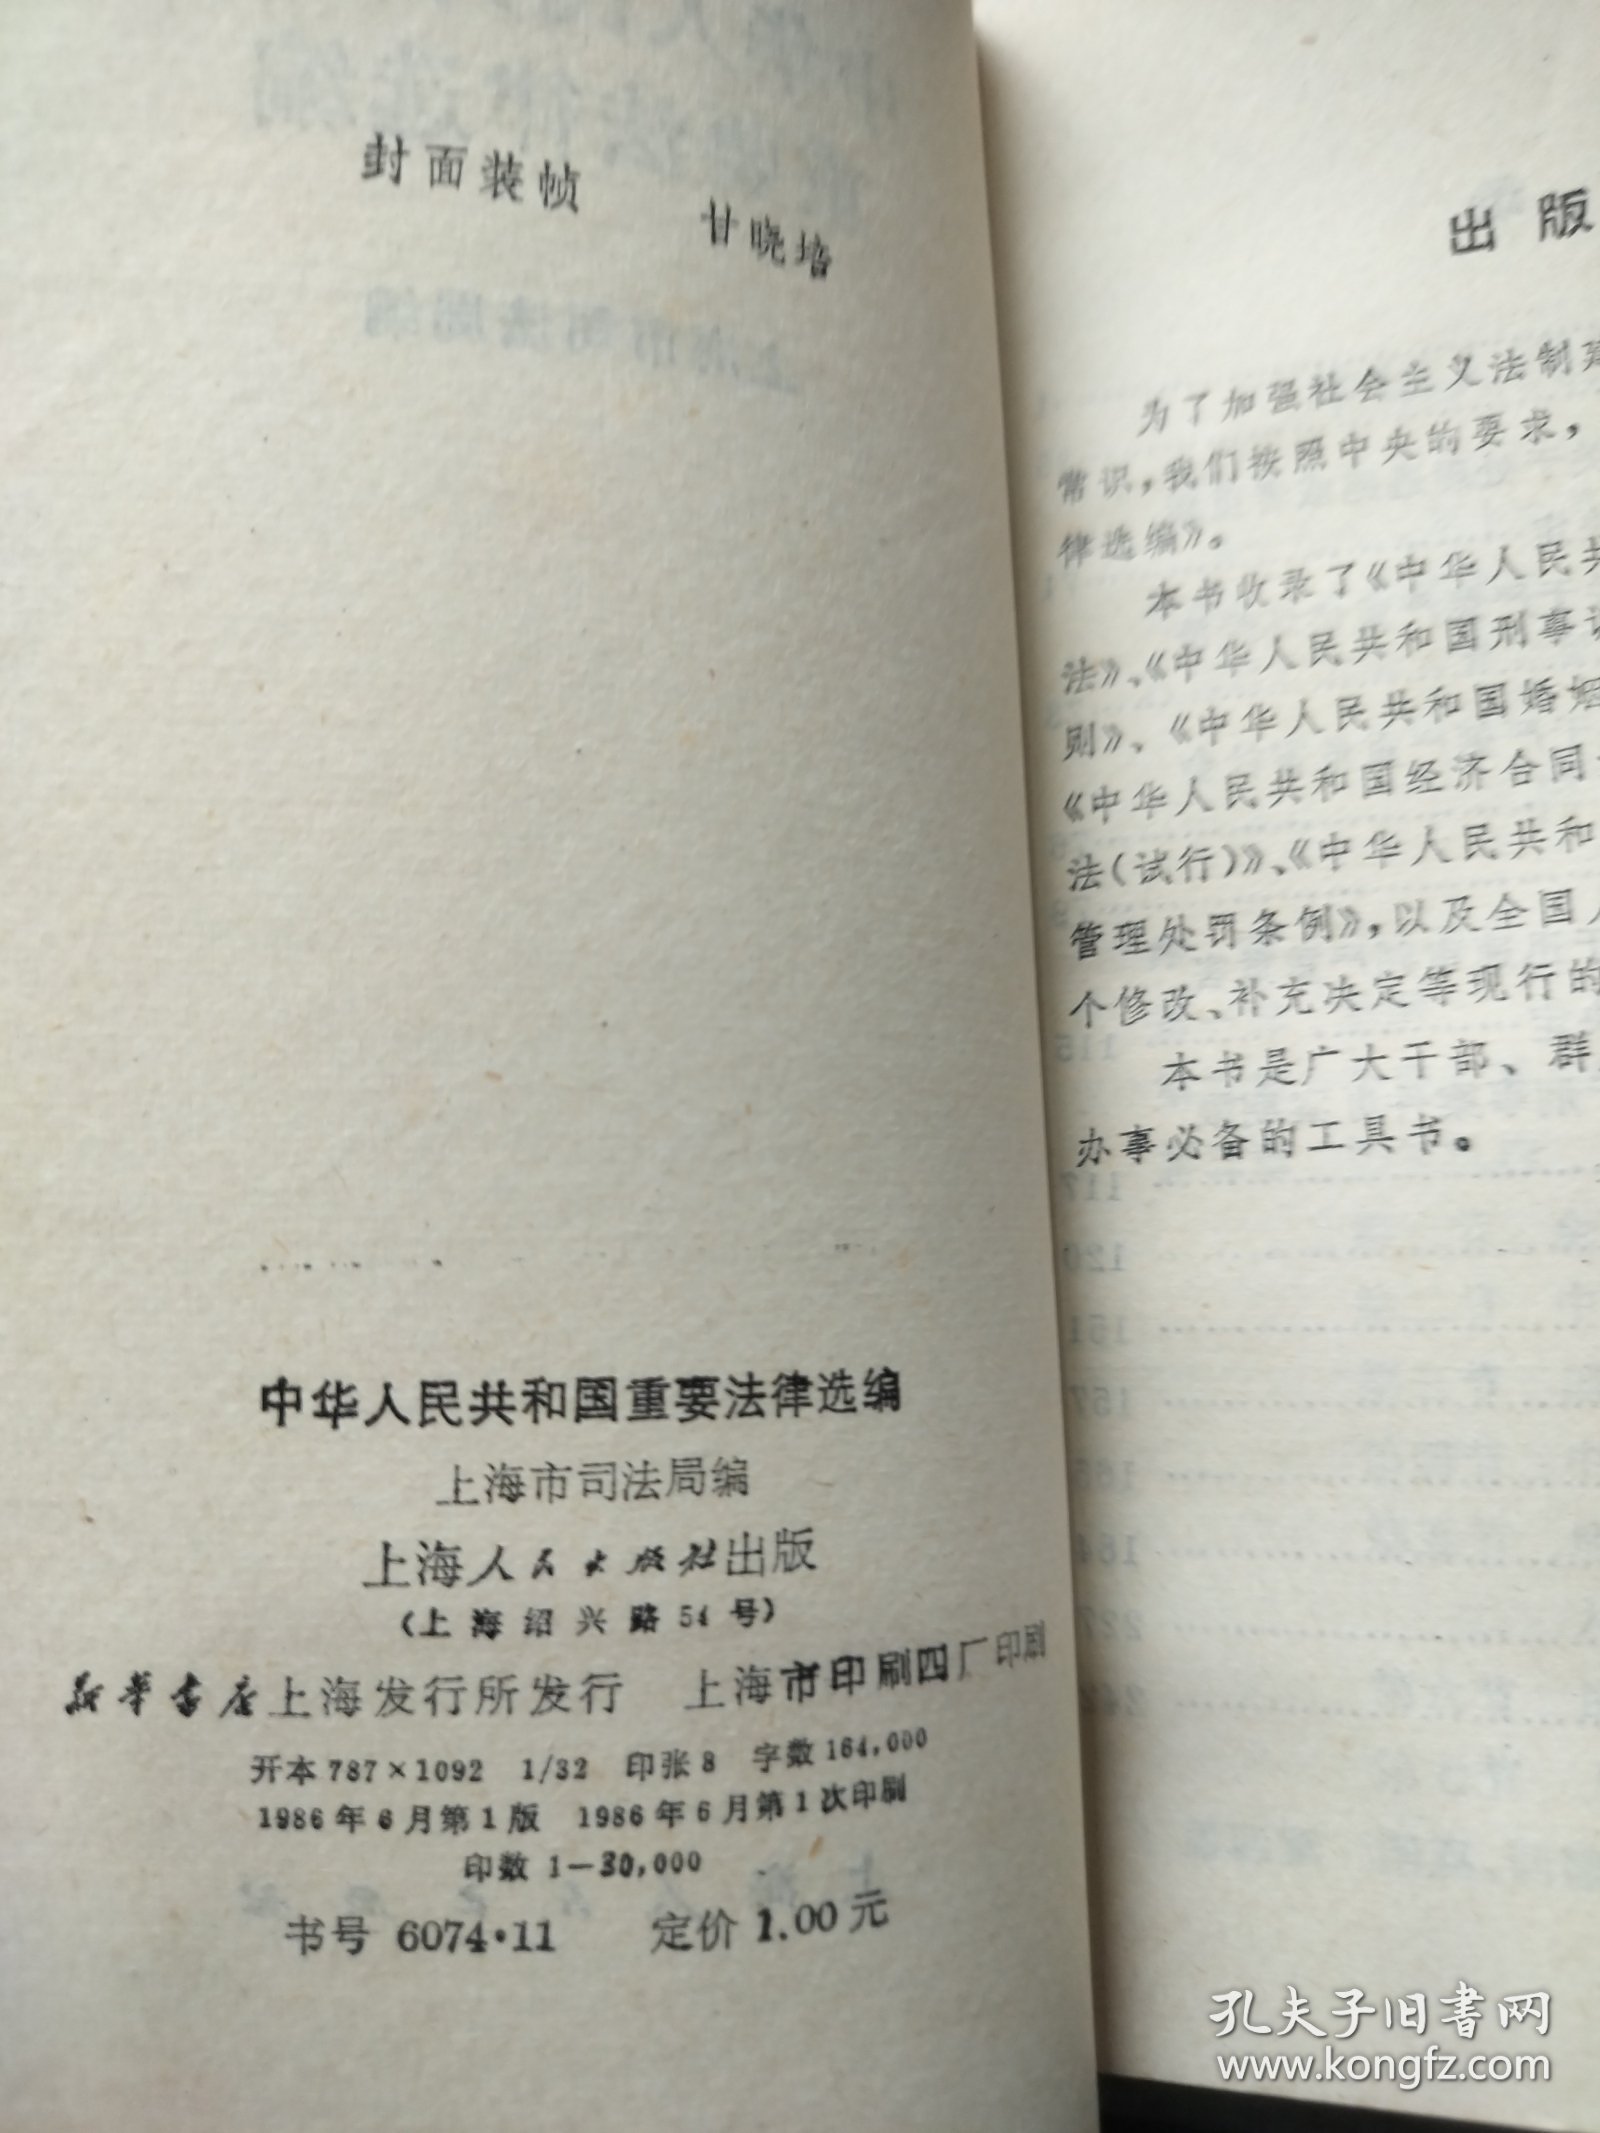 封面装帧 甘晓培
中华人民共和国重要法律选编
上海市司法局编
上海人民出版社出版
（上海绍兴路54号）
新华书店上海发行所发行 上海市印刷四厂印刷
开本787×1092 1/32 印张8 字数164,000
1986年6月第1版 1986年6月第1次印刷
印数 1—30,000
书号 6074·11 定价 1.00元
出版
为了加强社会主义法制建
常识，我们按照中央的要求，
律选编》。
本书收录了《中华人民共
法》、《中华人民共和国刑事诉
则》、《中华人民共和国婚姻
《中华人民共和国经济合同
法(试行)》、《中华人民共和
管理处罚条例》，以及全国人
个修改、补充决定等现行的
本书是广大干部、群
办事必备的工具书。
孔夫子旧书网
www.kongfz.com